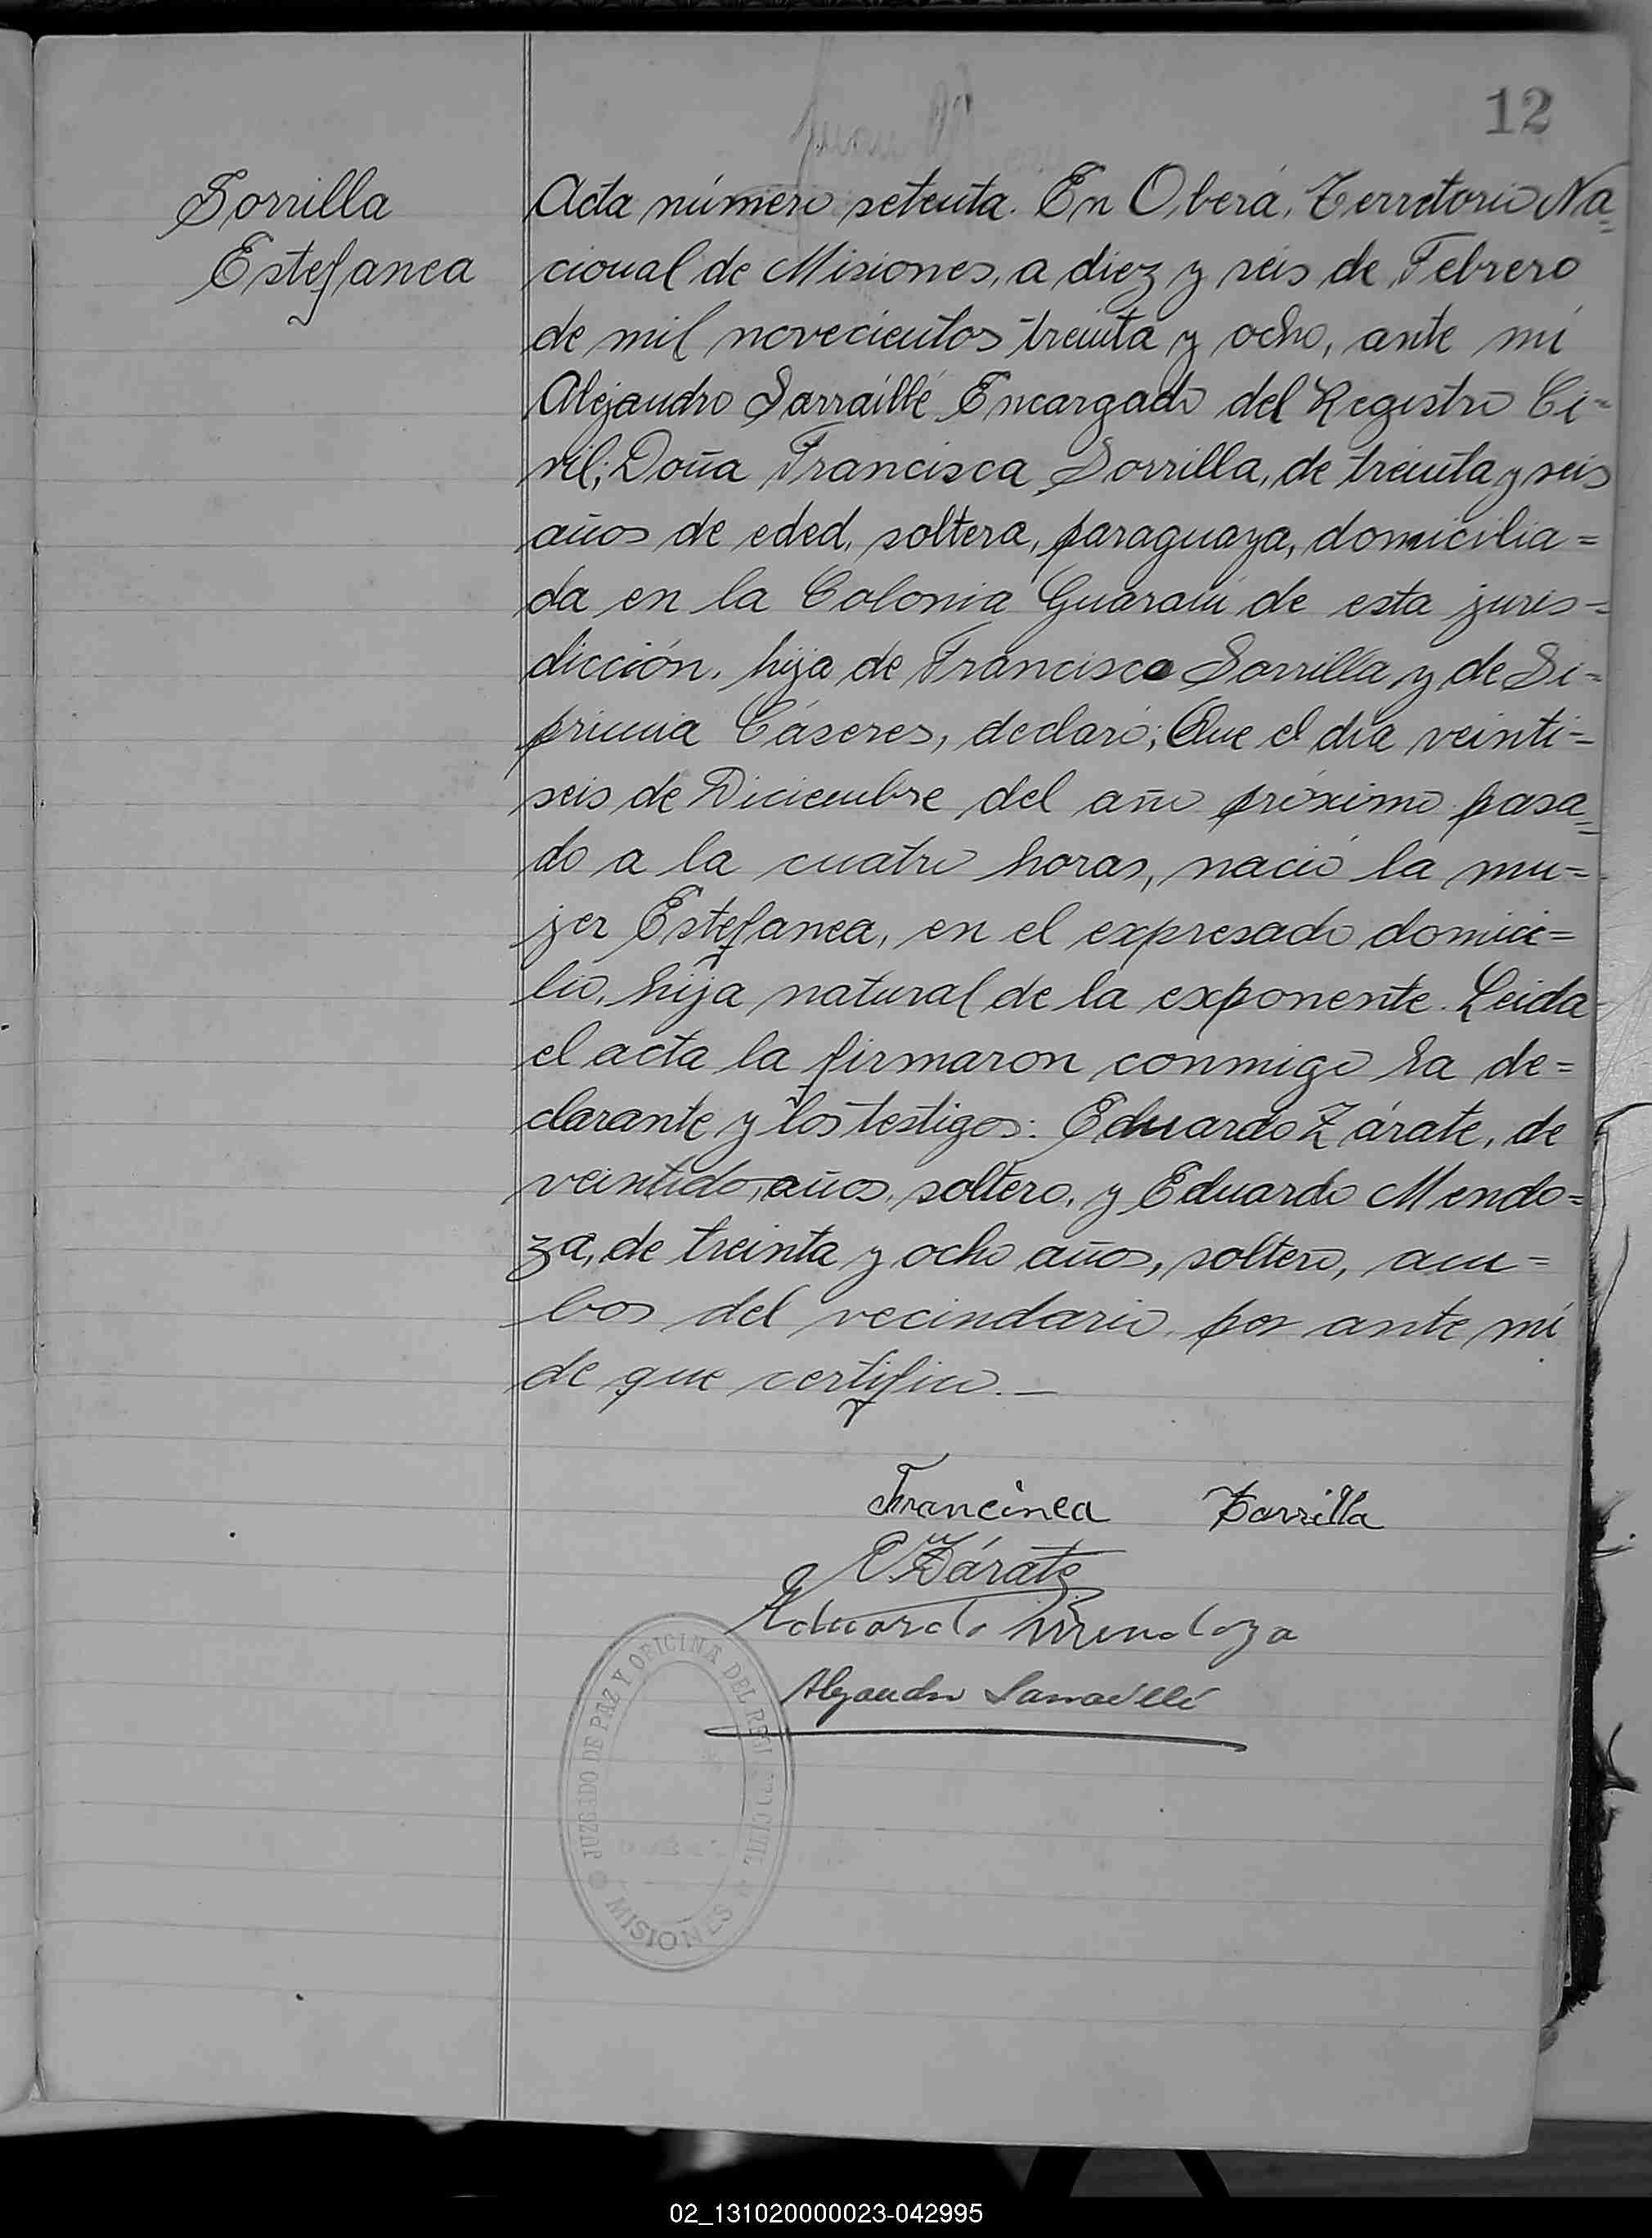 12
Sorrilla
Estefanea
Acta número setenta. En Oberá, Terretorio Na=
cional de Misiones, a diez y seis de Febrero
de mil novecientos treinta y ocho, ante mí
Alejandro Sarraillé Encargado del Registro Ci=
vil; Doña Francisca Sorrilla, de treinta y seis
años de eded, soltera, paraguaya, domicilia=
da en la Colonia Guaraní de esta juris=
dicción, hija de Francisco Sorrilla y de Si=
priuia Cáseres, declaró; Que el día veinti=
seis de Diciembre del año próximo pasa=
do a la cuatro horas, nació la mu=
jer Estefanea, en el expresado domici=
lio, hija natural de la exponente. Leida
el acta la firmaron conmigo la de=
clarante y los testigos: Eduardo Zárate, de
veintido, años, soltero, y Eduardo Mendo=
za, de treinta y ocho años, soltero, am=
bos del vecindario, por ante mí
de que certifico.—
Francinea Zorrilla
E Zárate
Eduardo Mendoza
Alejandro Sarraillé
JUZGADO DE PAZ Y OFICINA DEL CIVIL
MISIONES
02_131020000023-042995